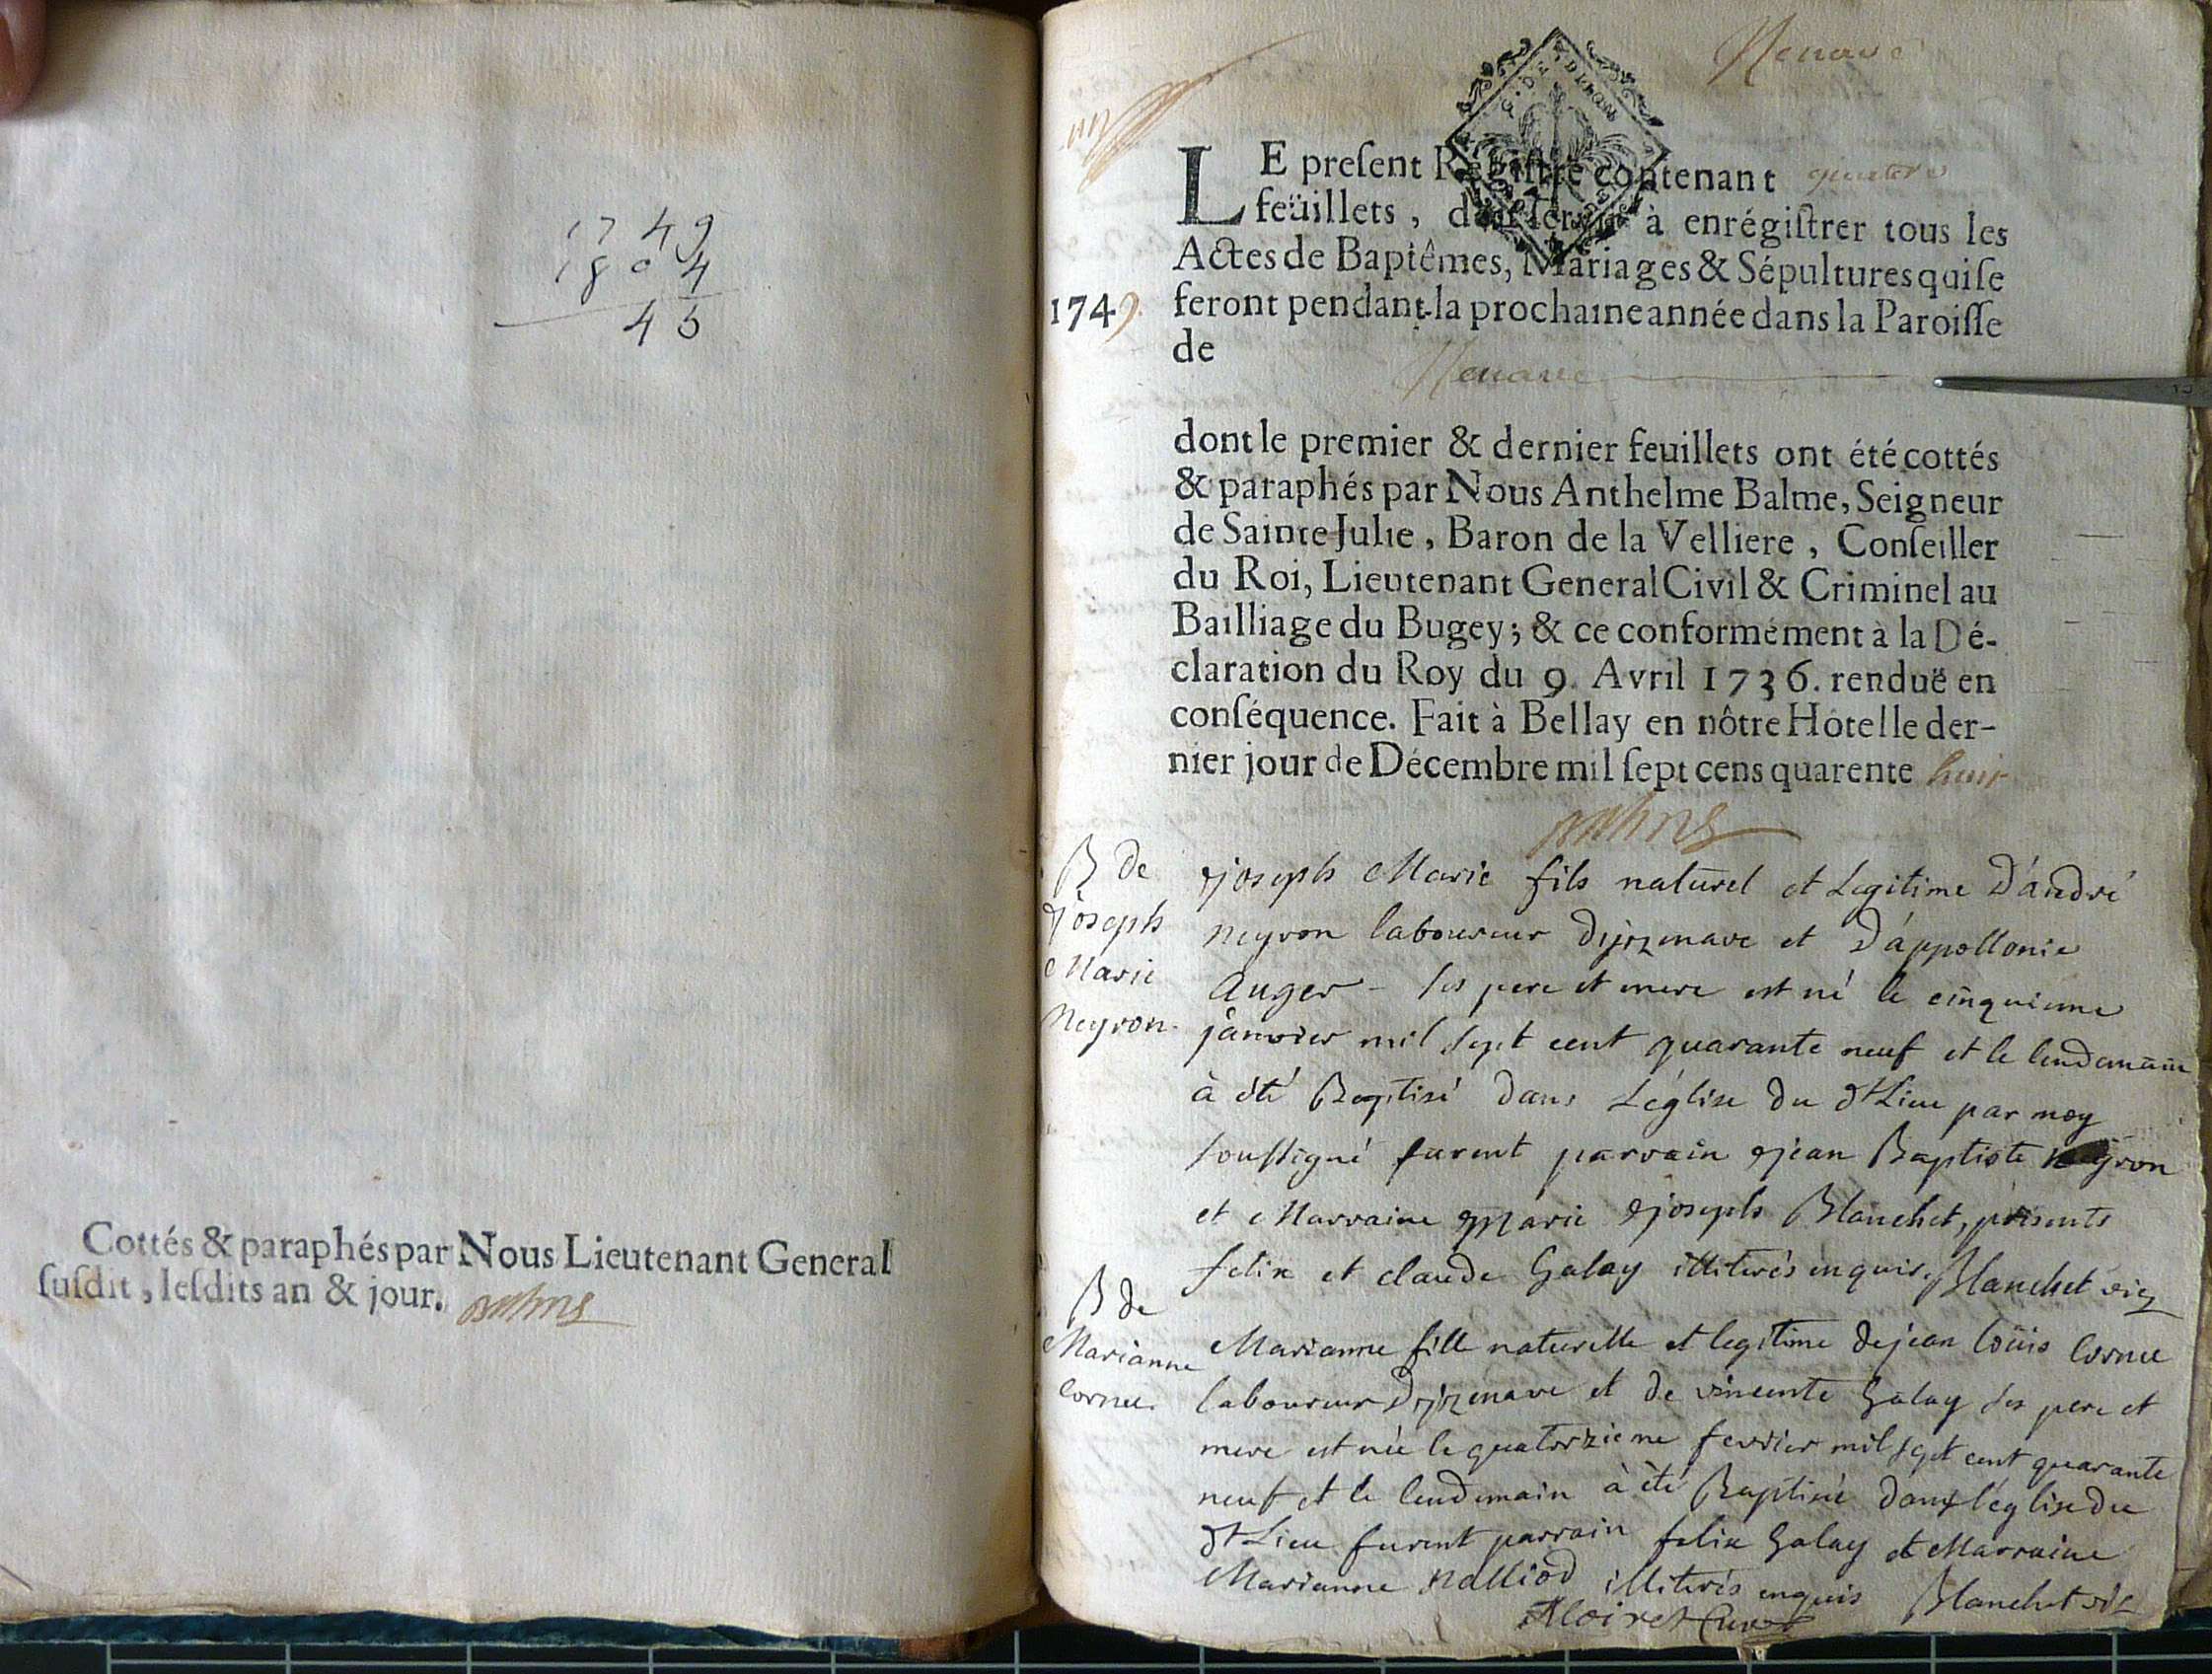 1749
1804
45
Cottés & paraphés par Nous Lieutenant General
ſuſdit, leſdits an & jour.
LE preſent Régiſtre contenant
feüillets, doit ſervir à enrégiſtrer tous les
Actes de Baptêmes, Mariages & Sépultures qui ſe
1749 feront pendant la prochaine année dans la Paroiſſe
de
dont le premier & dernier feuillets ont été cottés
& paraphés par Nous Anthelme Balme, Seigneur
de Sainte Julie, Baron de la Velliere, Conſeiller
du Roi, Lieutenant General Civil & Criminel au
Bailliage du Bugey; & ce conformément à la Dé-
claration du Roy du 9. Avril 1736. renduë en
conſéquence. Fait à Bellay en nôtre Hôtel le der-
nier jour de Décembre mil ſept cens quarente huit
B de
joseph
Marie
Neyron.
joseph Marie fils naturel et Legitime D'andré
neyron laboureur et D'appollonie
Auger ses pere et mere est né le cinquieme
janvier mil sept cent quarante neuf et le lendemain
à été Baptisé dans L'église du dt Lieu par moy
soussigné furent parrain jean Baptiste neyron
et Marraine Marie joseph Blanchet, présents
felix et claude Galay illiterés enquis. Blanchet vic
B de
Marianne
Cornu.
Marianne fille naturelle et legitime de jean loüis Cornu
laboureur et de vincente Galay ses pere et
mere est née le quatorzieme fevrier mil sept cent quarante
neuf et le lendemain à été Baptisée dans l'église du
dt Lieu furent parrain felix Galay et Marraine
Marianne illiterés enquis Blanchet vic